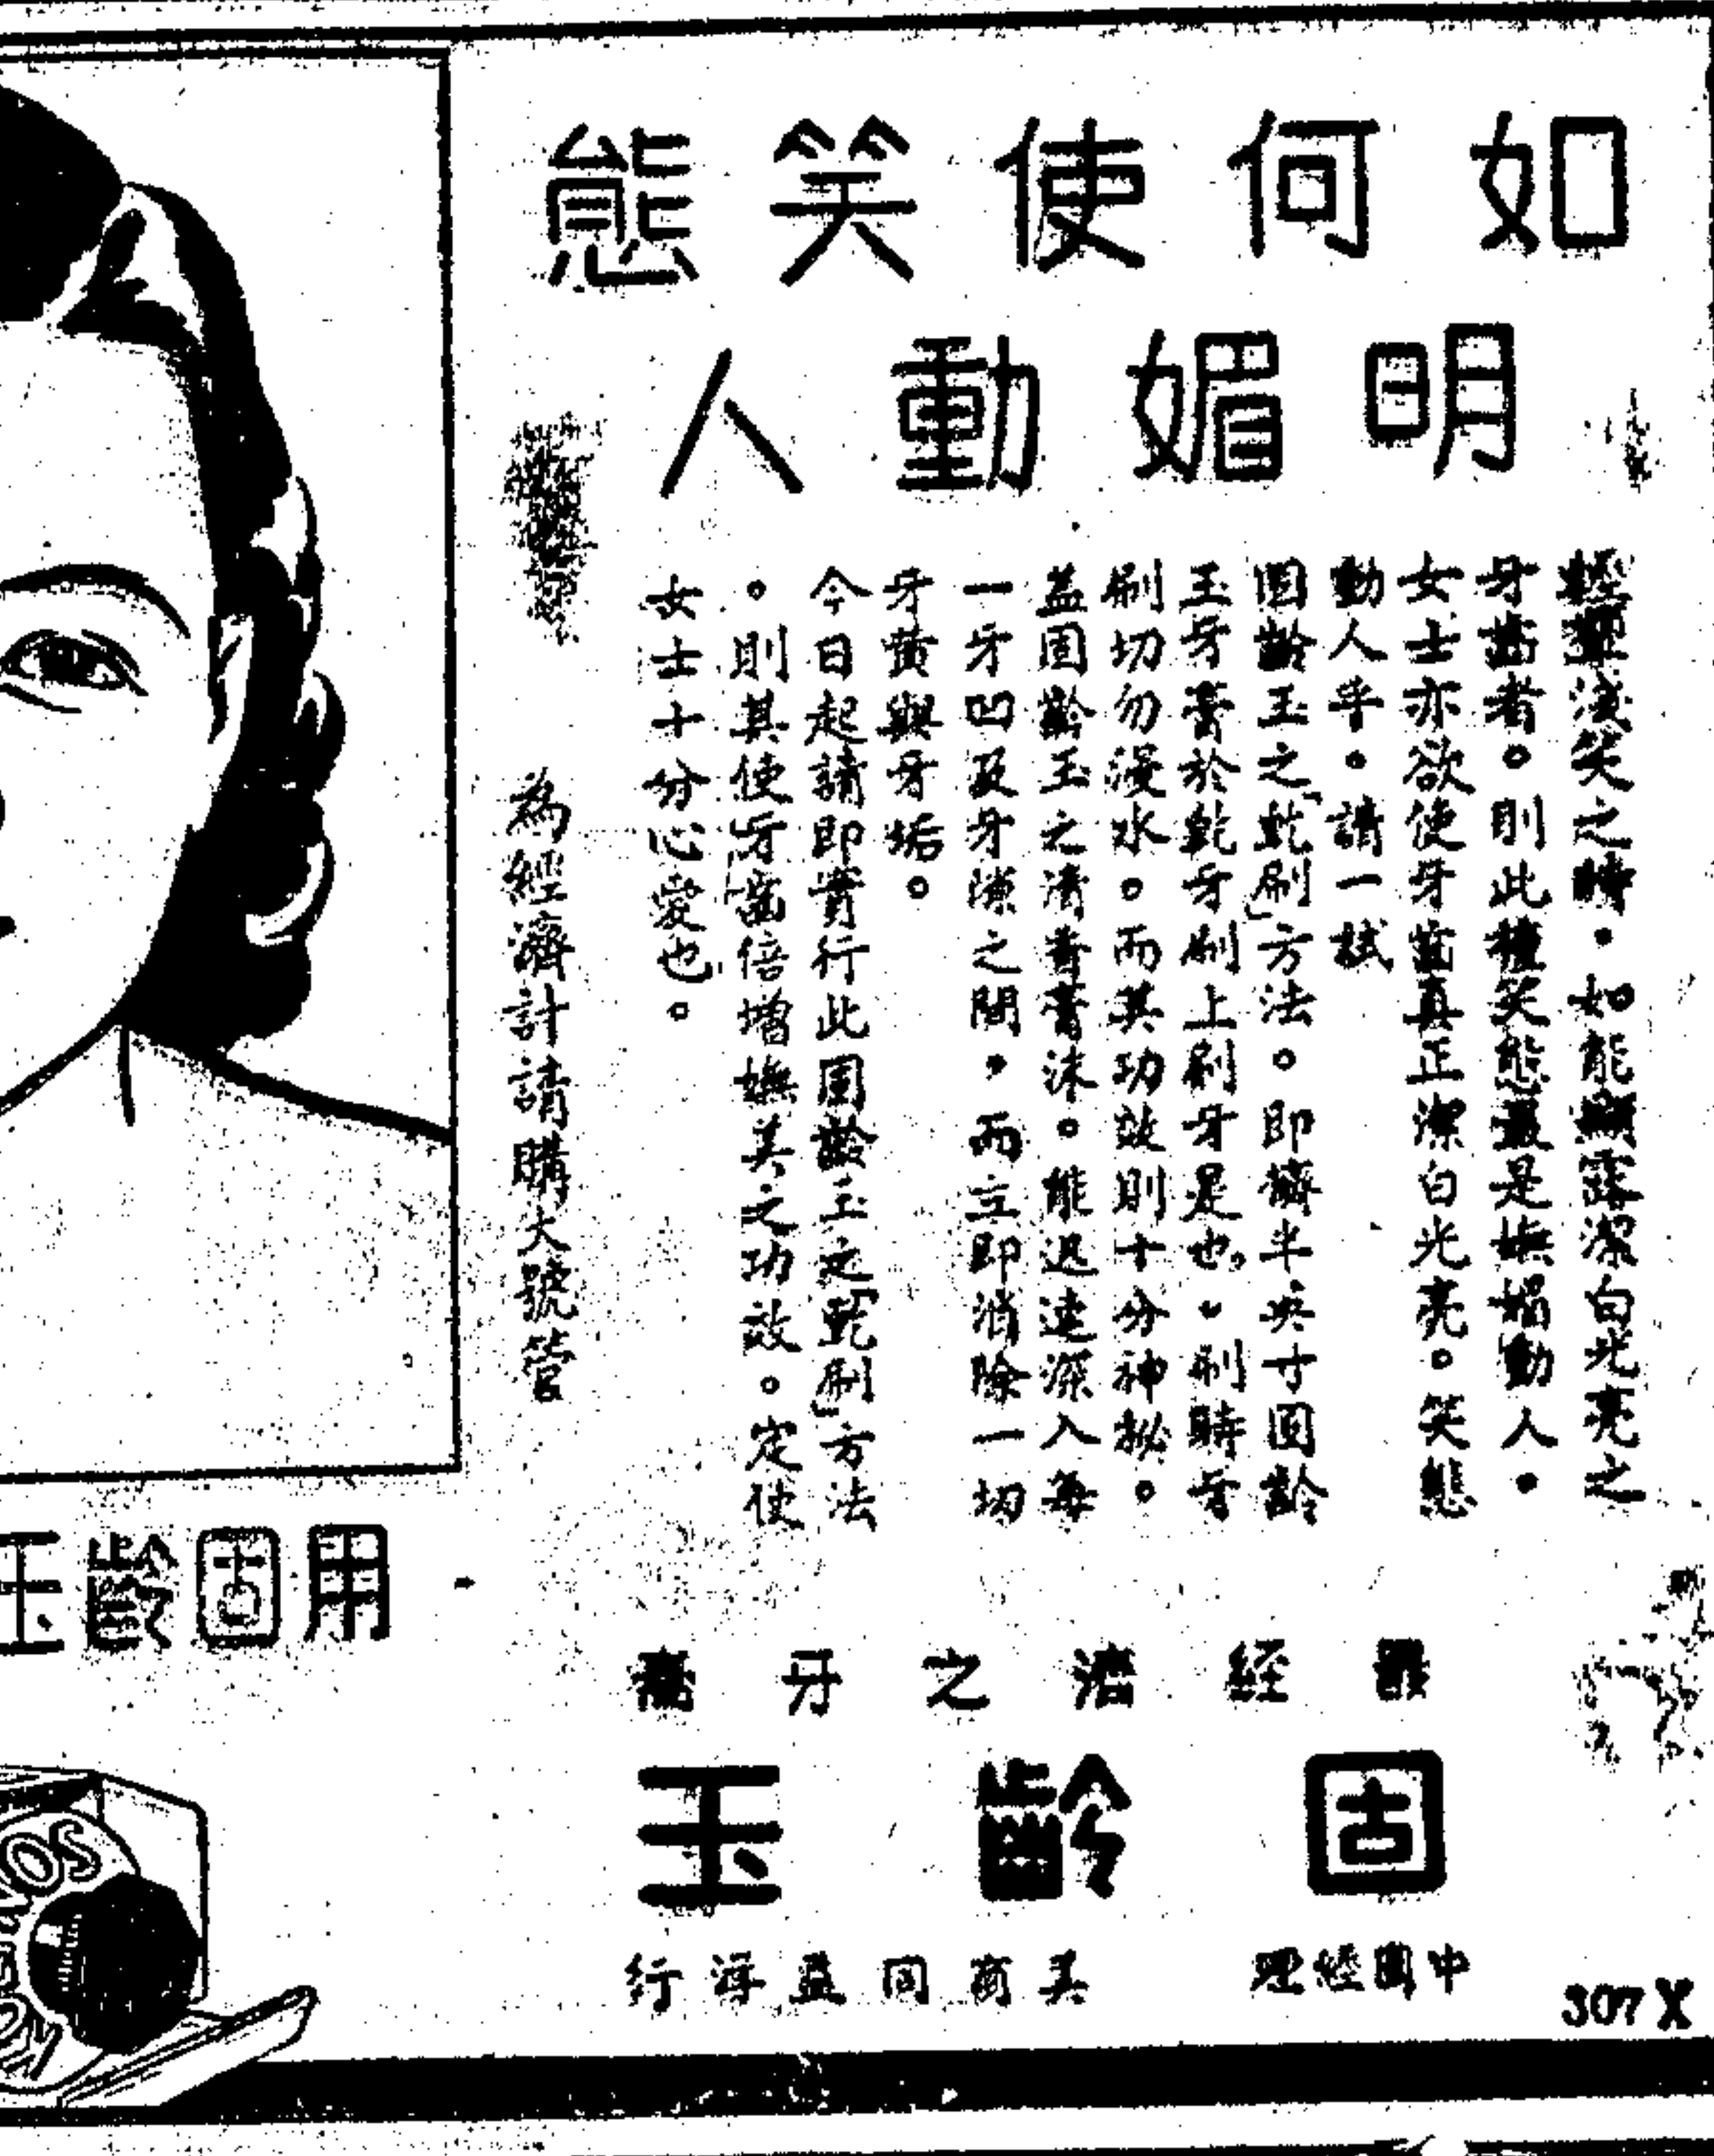 如何使笑態
明媚動人
輕顰淺笑之時。如能顯露潔白光亮之
牙齒者。則此種笑態最是嫵媚動人。
女士亦欲使牙齒真正潔白光亮。笑態
動人乎。請一試
固齡玉之「乾刷」方法。即擠半英寸固齡
玉牙膏於乾牙刷上刷牙是也。刷時
刷切勿浸水。而其功效則十分神秘。
蓋固齡玉之清膏沫。能迅速深入每
一牙凹及牙隙之間。而立即消除一切
牙黃與牙垢。
今日起請即實行此固齡玉之「乾刷」方法
。則其使牙齒倍增嫵美之功效。定使
女士十分心愛也。
為經濟計請購大號管
用固齡玉
最經濟之牙膏
固齡玉
中國經理
美商同益洋行
307X